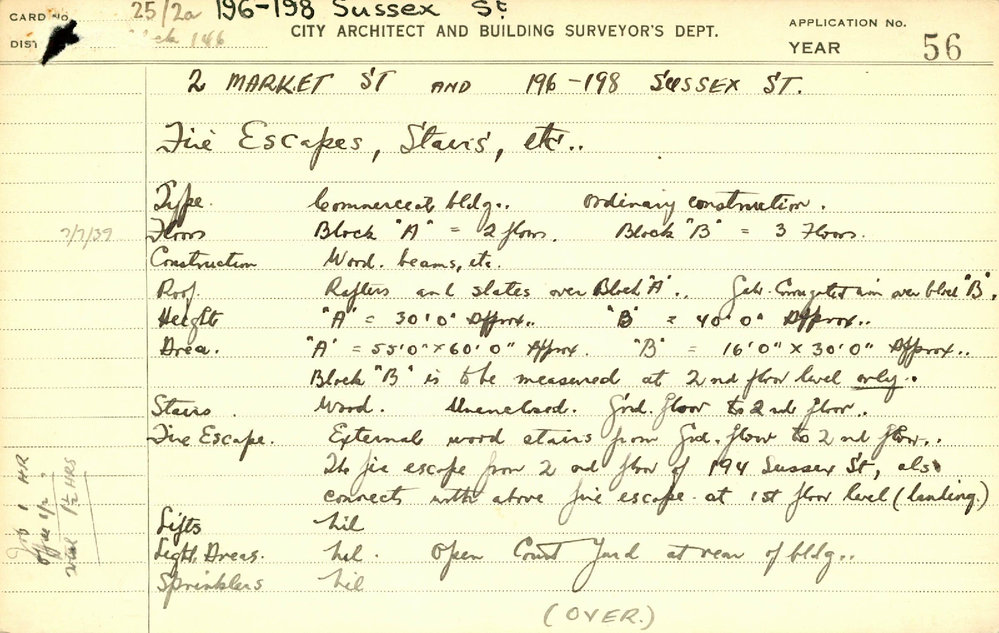 CARD No. 25/2a 196-198 Sussex St
CITY ARCHITECT AND BUILDING SURVEYOR'S DEPT.
APPLICATION No.
DIST 146
YEAR 56
2 MARKET ST AND 196-198 SUSSEX ST.
Fire Escapes, Stairs, etc..
Type. Commercial bldg.. Ordinary construction.
7/7/39
Floors Block "A" = 2 floors. Block "B" = 3 Floors.
Construction Wood. beams, etc.
Roof. Rafters and slates over Block "A".. Galv. Corrugated iron over block "B".
Height "A" = 30'0" Approx.. "B" = 40'0" Approx..
Area. "A" = 55'0" x 60'0" Approx. "B" = 16'0" x 30'0" Approx..
Block "B" is to be measured at 2nd floor level only..
Stairs. Wood. Unenclosed. Grd. floor to 2nd floor..
Fire Escape. External wood stairs from Grd. floor to 2nd floor..
The fire escape from 2nd floor of 194 Sussex St, also
connects with above fire escape at 1st floor level (landing.)
Lifts nil
Light Areas. nil. Open Court Yard at rear of bldg..
Sprinklers nil
(OVER.)
Job 1 HR
Office 1/2
Total 1½ HRS